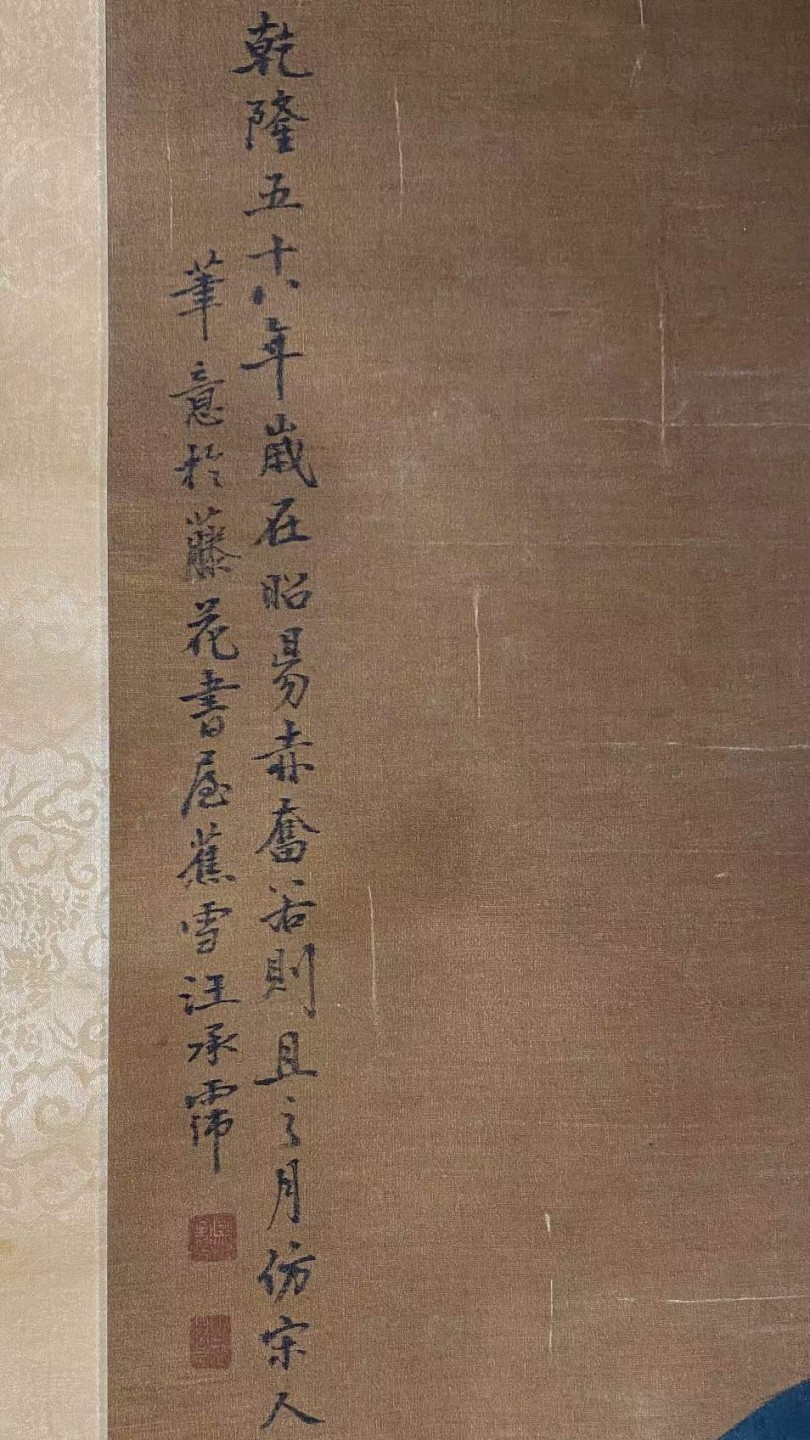 乾隆五十八年嵗在昭昜赤奮若則且之月仿宋人
筆意於藤花書屋蕉雪汪承霈